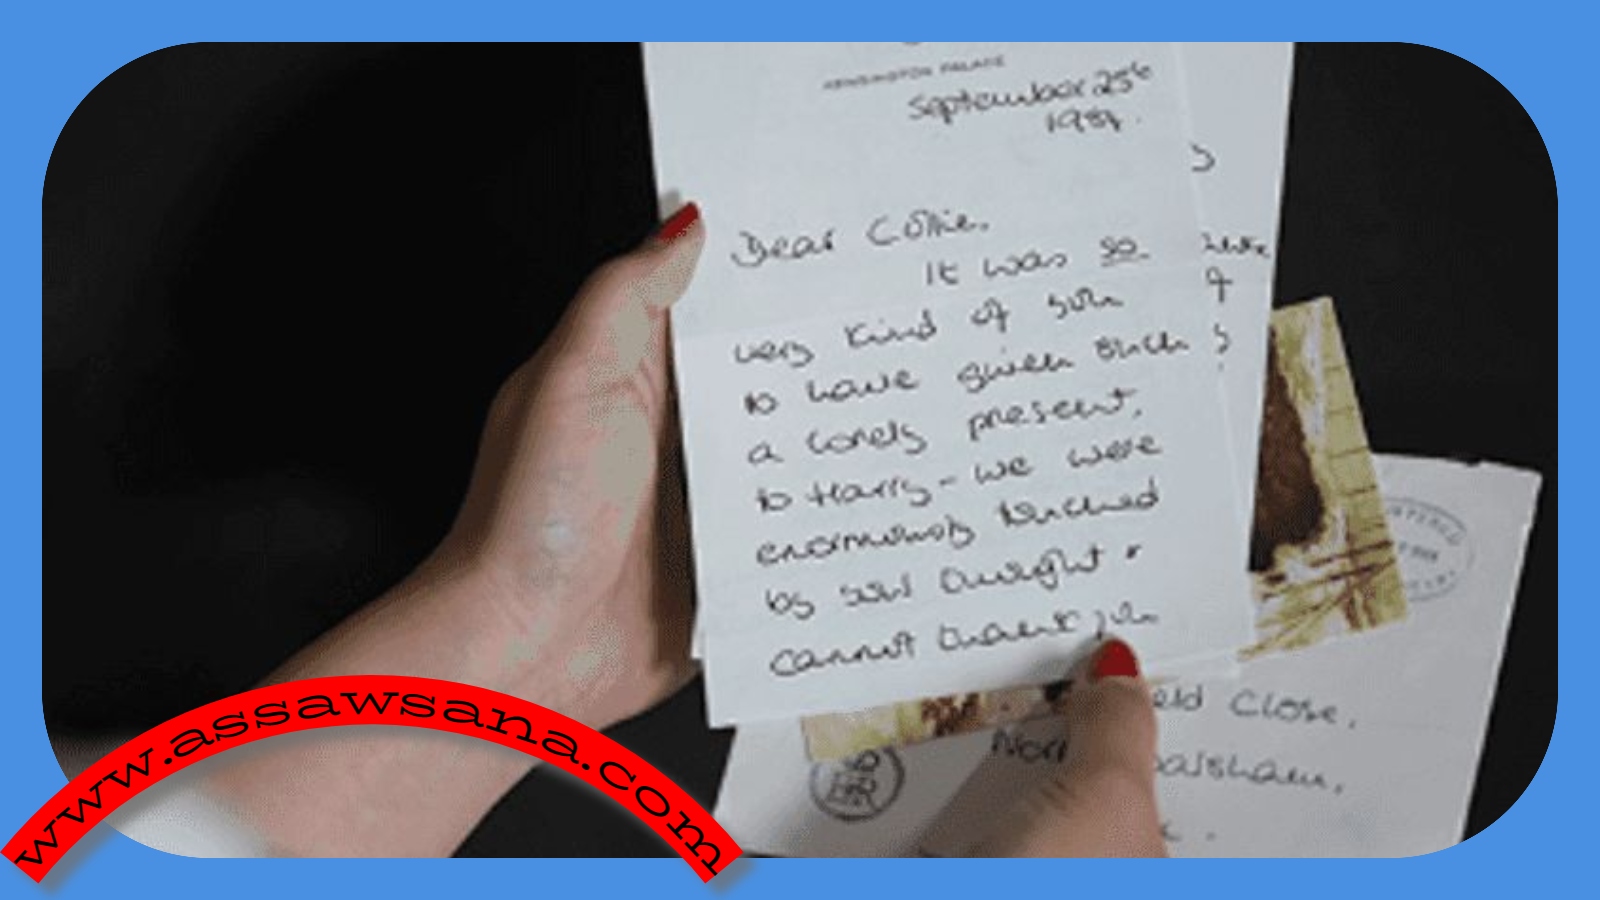 KENSINGTON PALACE
September 25th
1984.
Dear Cyril.
It was so
very kind of you
to have given such
a lovely present,
to Harry - we were
enormously touched
by your thought &
cannot thank you
eld Close,
alsham,
www.assawsana.com